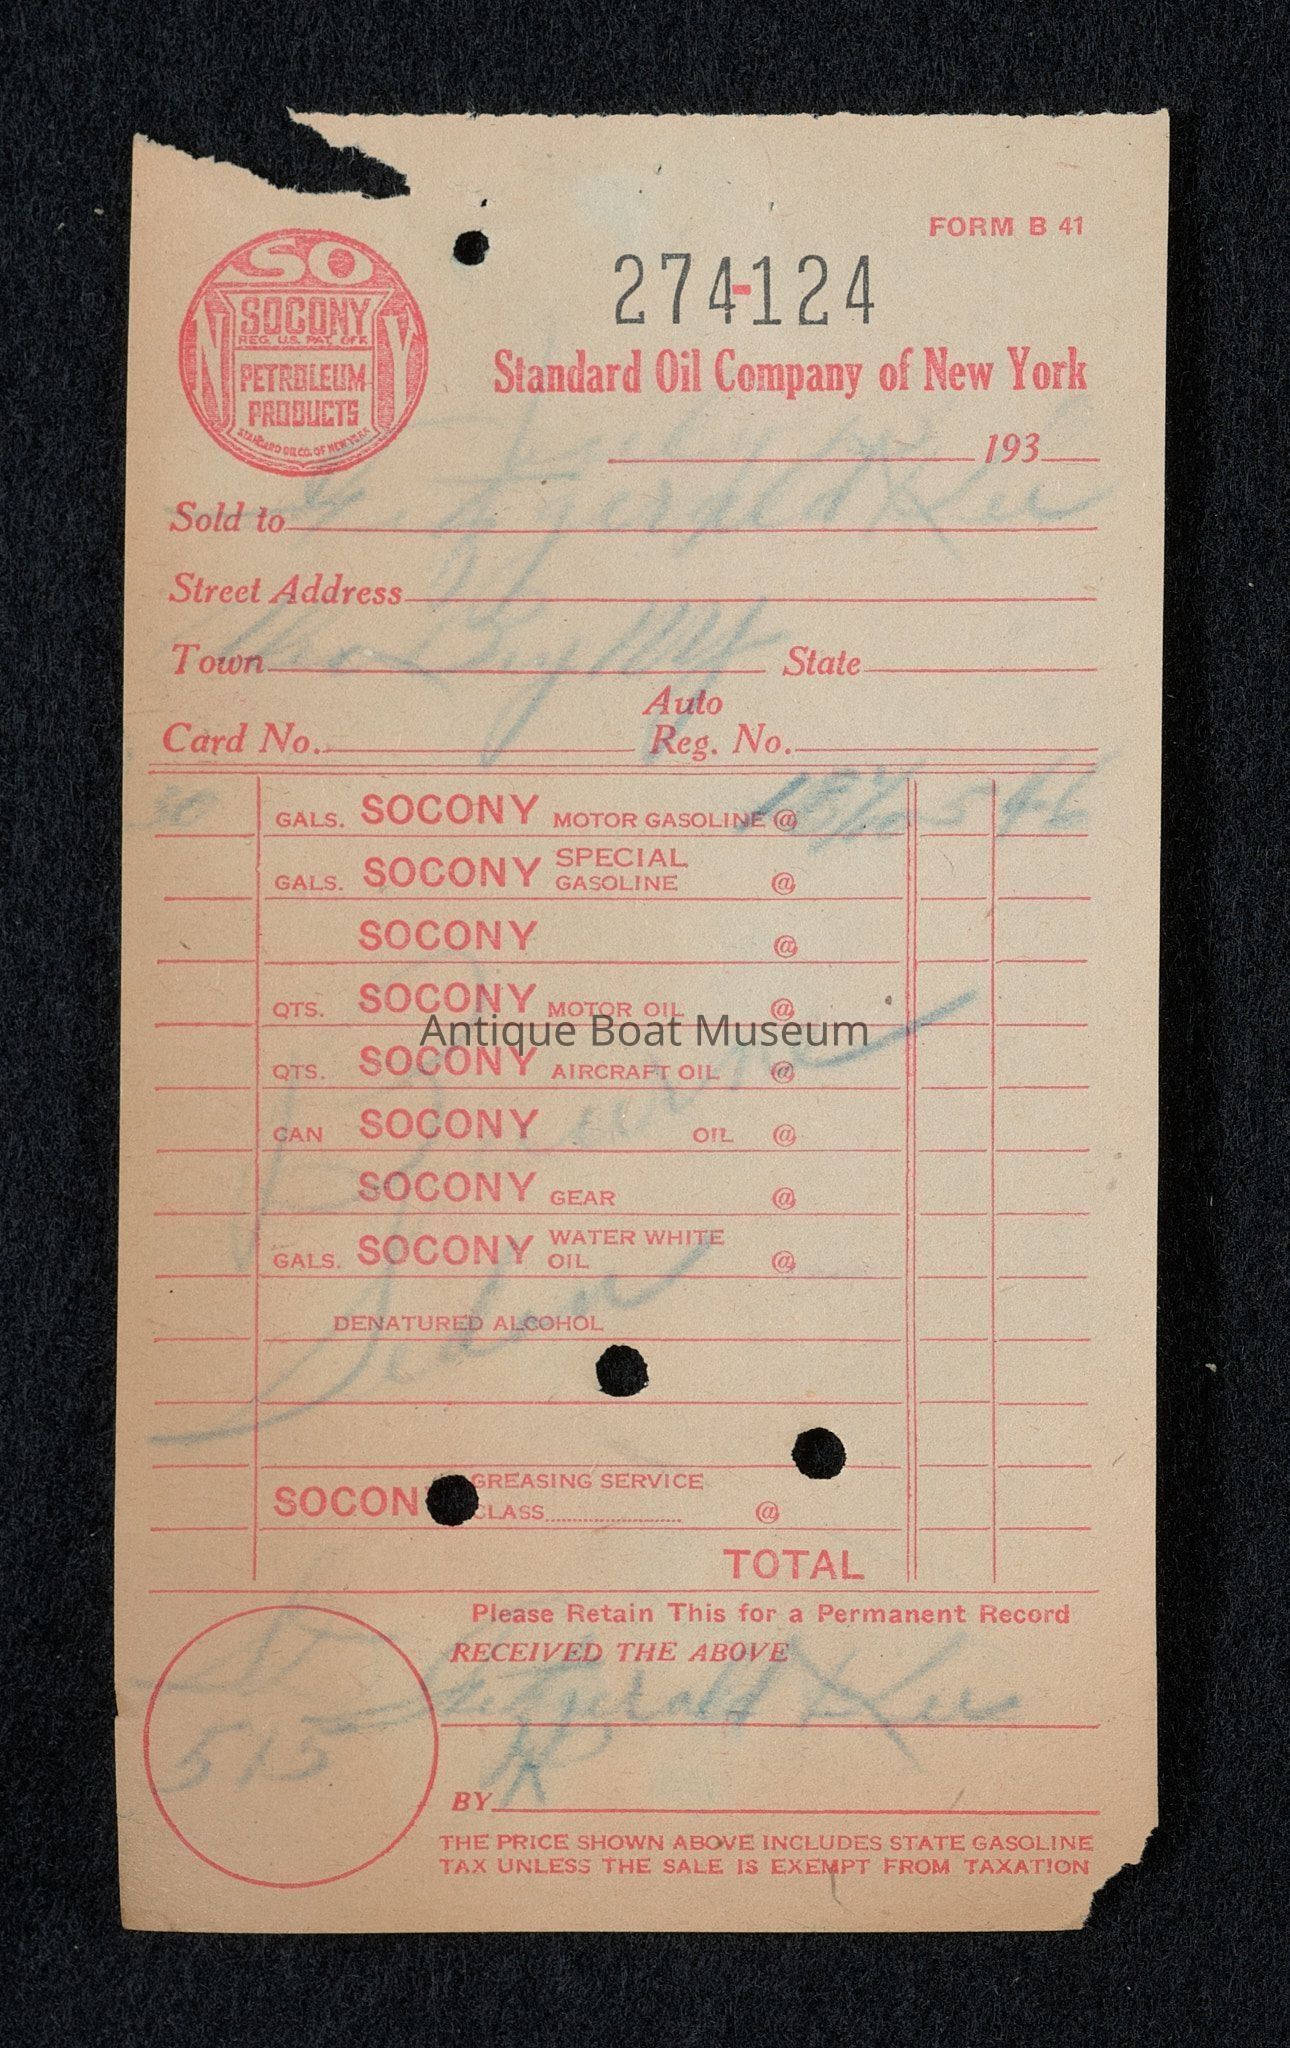 FORM B 41
274-124
SO
N Y
SOCONY
REG. U.S. PAT. OFF.
PETROLEUM
PRODUCTS
STANDARD OIL CO. OF NEW YORK
Standard Oil Company of New York
193
Sold to Fitzgerald & Lee
Street Address
Town Alex Bay NY State
Auto
Card No. Reg. No.
30 GALS. SOCONY MOTOR GASOLINE @ 5 46
GALS. SOCONY SPECIAL GASOLINE @
SOCONY @
QTS. SOCONY MOTOR OIL @
Antique Boat Museum
QTS. SOCONY AIRCRAFT OIL @
CAN SOCONY OIL @
SOCONY GEAR @
GALS. SOCONY WATER WHITE OIL @
DENATURED ALCOHOL
SOCON GREASING SERVICE
CLASS @
TOTAL
Please Retain This for a Permanent Record
RECEIVED THE ABOVE
Fitzgerald & Lee
515
BY
THE PRICE SHOWN ABOVE INCLUDES STATE GASOLINE
TAX UNLESS THE SALE IS EXEMPT FROM TAXATION